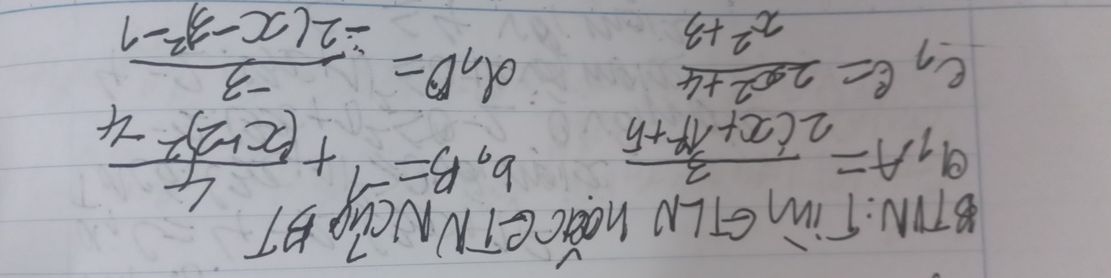 BTVN: Tìm GTLN hoặc GTNN của BT
a, A = 3/(2(x+1)²+5) b, B = -1 + 4/((x+2)²-4)
c, C = (2x²+4)/(x²+3) d, D = -3/(-2(x-3)²-1)